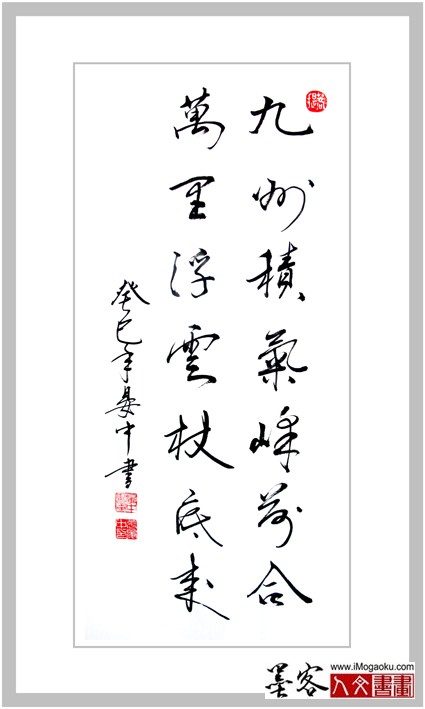 九州積氣峰前合
萬里浮雲杖底來
癸巳年晏中書
www.iMogaoku.com
墨客
人文書畫